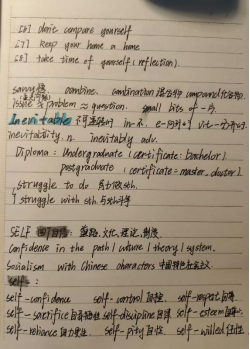 [5] don't compare yourself
[6] keep your home a home
[8] take time of yourself (reflection).
combine. combination 混合物 compound 化合物.
issue ≈ problem ≈ question. small bits of 一点
Inevitable 不可避免的 in-不
inevitability n. inevitably adv.
Diploma: Undergraduate (certificate: bachelor).
postgraduate (certificate = master.
struggle to do
struggle with sth.
SELF 道路,文化,理论,制度
Confidence in the path / culture / theory / system.
Socialism with Chinese characters 中国特色社会主义
self- :
self-confidence self-control 自控. self-respect 自尊
self-sacrifice 自我牺牲 self-discipline 自律 self-esteem
self-reliance self-pity 自怜 self-willed 任性